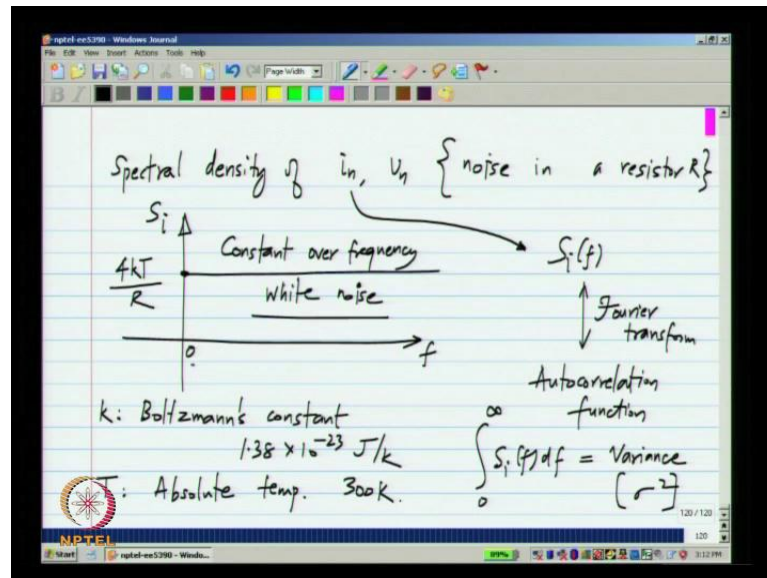 nptel-ee5390 - Windows Journal
File Edit View Insert Actions Tools Help
Page Width
B I
Spectral density of in, vn { noise in a resistor R}
Si
Constant over frequency
4kT/R
white noise
0
f
Si(f)
Fourier transform
Autocorrelation function
k: Boltzmann's constant
1.38 × 10^-23 J/k
T: Absolute temp. 300K.
∫0^∞ Si(f)df = Variance [σ^2]
120 / 120
120
NPTEL
Start nptel-ee5390 - Windo... 89% 3:12 PM